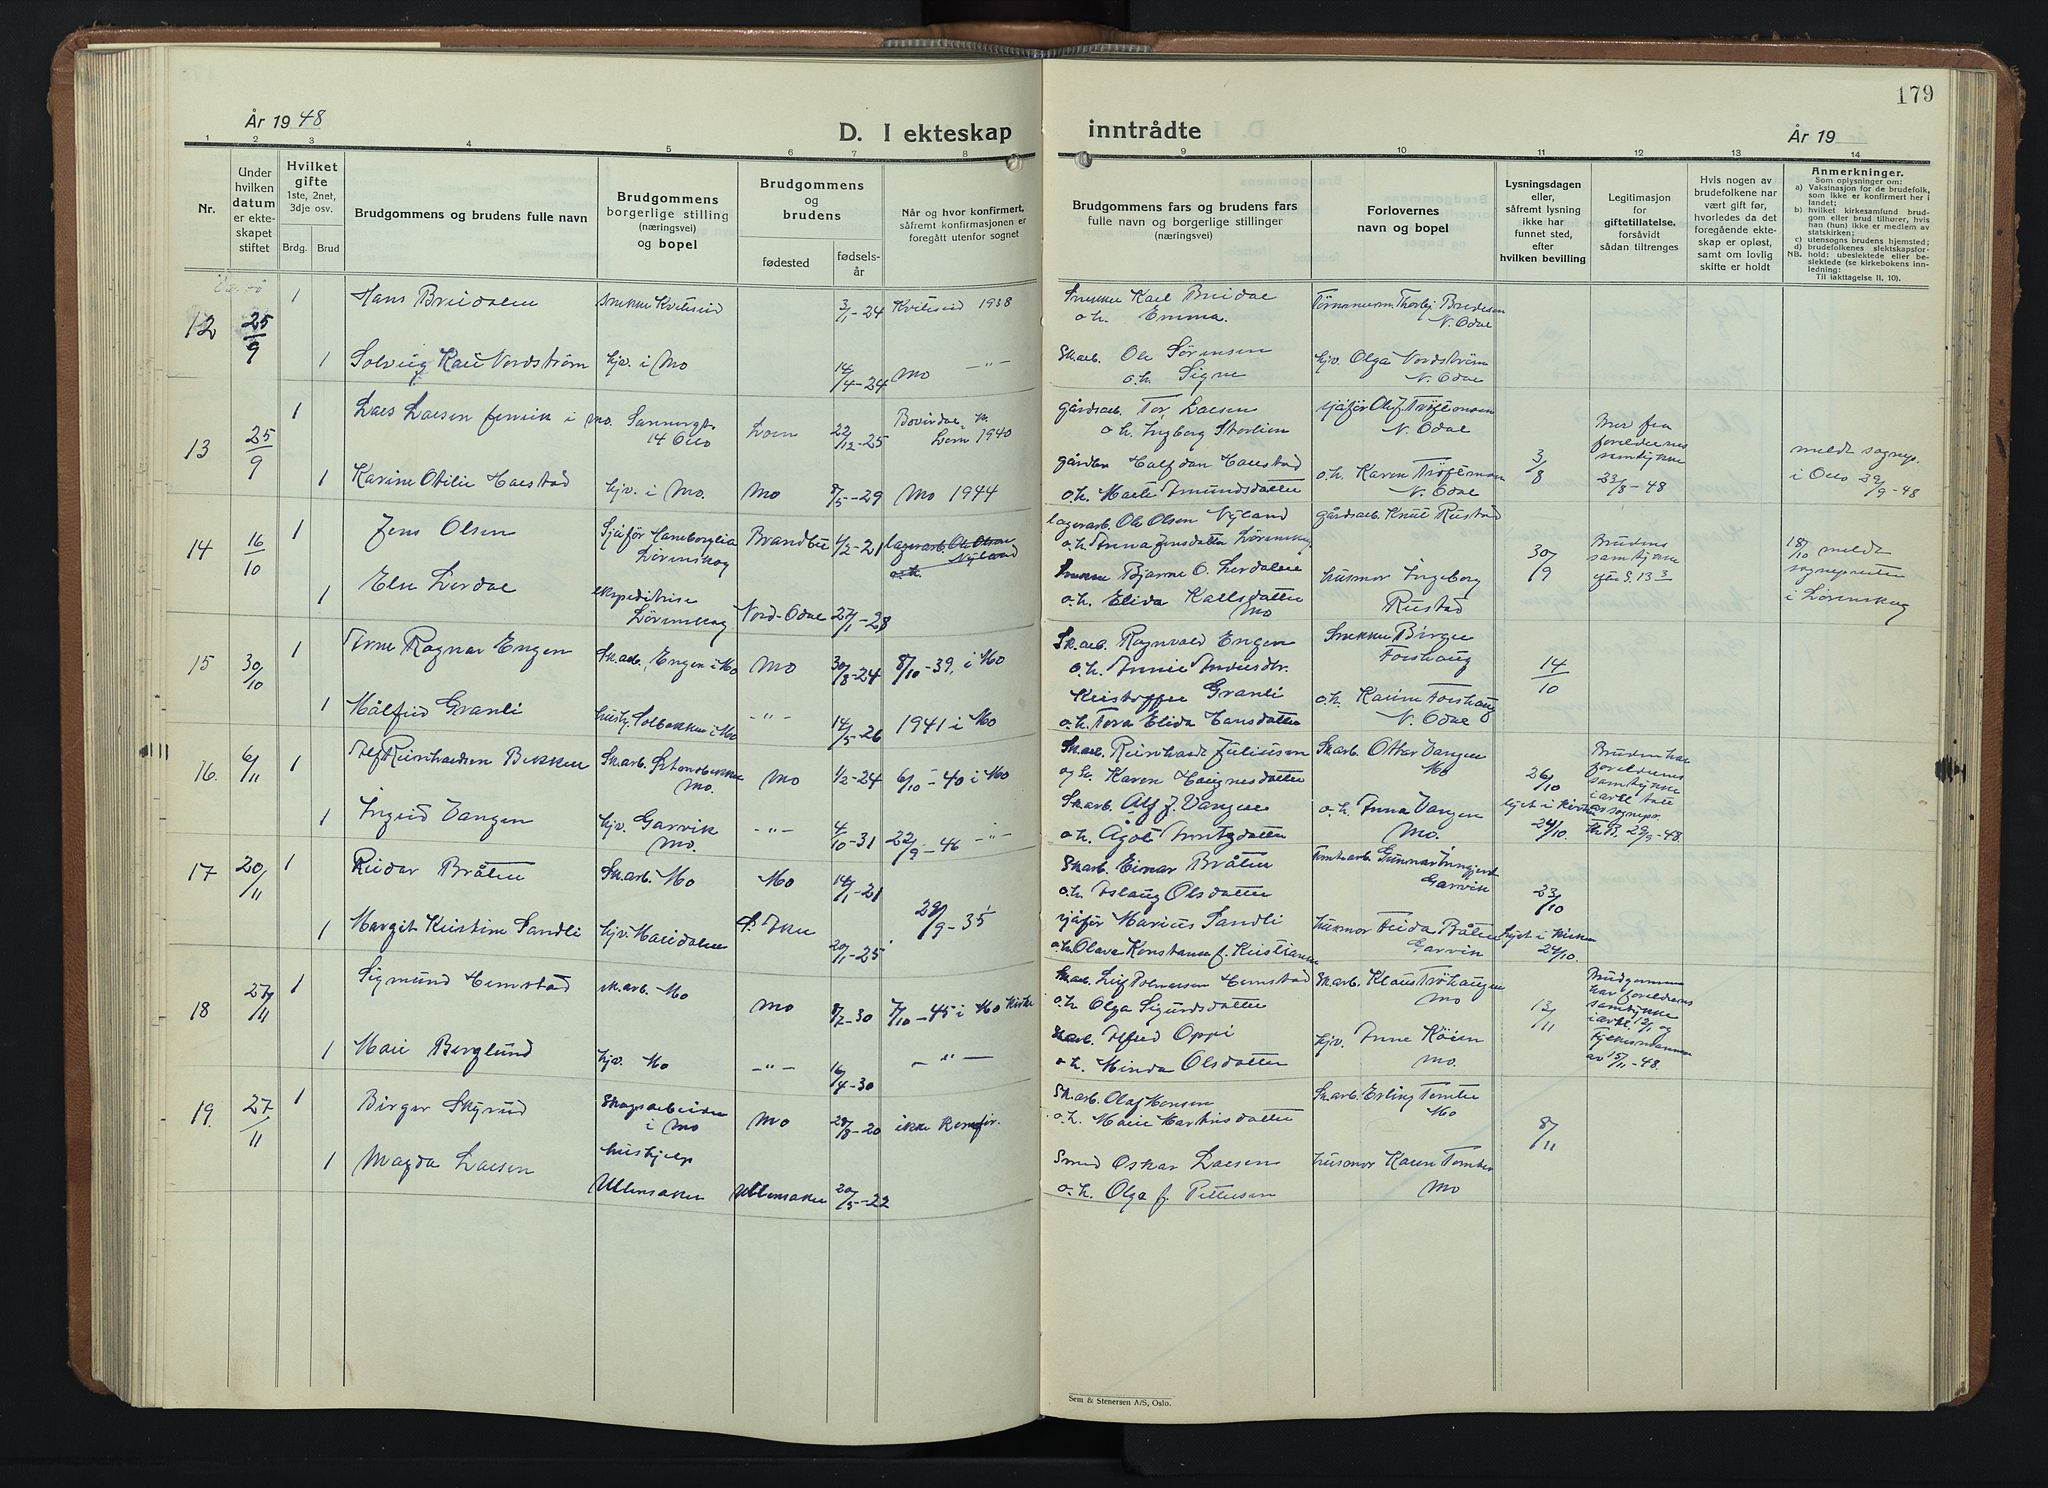 179
År 1948
D. I ekteskap
inntrådte
År 19
1 2 3 4 5 6 7 8 9 10 11 12 13 14
Nr.
Under hvilken datum er ekteskapet stiftet
Hvilket gifte
1ste, 2net, 3dje osv.
Brdg. Brud
Brudgommens og brudens fulle navn
Brudgommens borgerlige stilling (næringsvei) og bopel
Brudgommens og brudens
fødested
fødselsår
Når og hvor konfirmert, såfremt konfirmasjonen er foregått utenfor sognet
Brudgommens fars og brudens fars fulle navn og borgerlige stillinger (næringsvei)
Forlovernes navn og bopel
Lysningsdagen eller, såfremt lysning ikke har funnet sted, efter hvilken bevilling
Legitimasjon for giftetillatelse, forsåvidt sådan tiltrenges
Hvis nogen av brudefolkene har vært gift før, hvorledes da det foregående ekteskap er opløst, samt om lovlig skifte er holdt
Anmerkninger.
Som oplysninger om:
a) Vaksinasjon for de brudefolk, som ikke er konfirmert her i landet;
b) hvilket kirkesamfund brudgom eller brud tilhører, hvis han (hun) ikke er medlem av statskirken;
c) utensogns brudens hjemsted;
d) brudefolkenes slektskapsforhold: ubeslektede eller beslektede (se kirkebokens innledning:
NB.
Til iakttagelse II, 10).
12 25/9 1 Hans Breidalen snekker Kviteseid 3/1-24 Kviteseid 1938 Snekker Karl Breidal Tømmerm. Thorbj. Bredesen
o.h. Emma. N. Odal
1 Solveig Kari Nordstrøm hjv. i Mo 14/4-24 Mo —"— Sk.arb. Ole Sørensen hjv. Olga Nordstrøm
o.h. Signe N. Odal
13 25/9 1 Lars Larsen Sannergt. 14 Oslo Lom 22/12-25 Lom 1940 gårdsarb. Tor Larsen sjåfør Olaf
o.h. Ingborg Storlien N. Odal Mer fra foreldrenes samtykke
1 Karine Otilie Harstad hjv. i Mo. Mo 8/5-29 Mo 1944 gårdbr. Halfdan Harstad o.h. Karen 3/8 23/8-48 meldt sognepr.
o.h. Marte Amundsdatter N. Odal i Oslo 29/9-48
14 16/10 1 Jens Olsen Sjåfør Haneborglia Lørenskog Brandbu 1/2-21 lagerarb. Ole Olsen Nyland o.h. lagerarb. Ole Olsen Nyland gårdsarb. Knut Rustad
o.h. Anna Jensdatter Lørenskog. 30/9 Brudens samtykke 18/10 meldt sognepresten i Lørenskog
1 Else Lerdal ekspeditrise Lørenskog Nord-Odal 27/1-28 Snekker Bjarne O. Lerdalen husmor Ingeborg Rustad
o.h. Elida Karlsdatter Mo
15 30/10 1 Arne Ragnar Engen Sk.arb. Engen i Mo Mo 30/8-24 8/10-39, i Mo Sk.arb. Ragnvald Engen Snekker Birger Forshaug
o.h. Annie 14/10
1 Målfrid Granli Solbakken i Mo —"— 14/5-26 1941 i Mo Kristoffer Granli o.h. Karine Forshaug
o.h. Tora Elida Hansdatter N. Odal
16. 6/11 1 Alf Reinhardsen Bekken Sk.arb. Stensbekken Mo. Mo 1/2-24 6/10-40 i Mo Sk.arb. Reinhardt Juliussen Sk.arb. Ottar Vangen Mo
og h. Karen Magnesdatter 26/10 Bruden har foreldrenes samtykke
1 Ingrid Vangen hjv. Garvik Mo. —"— 4/10-31 22/9-46 —"— Sk.arb. Alf J. Vangen o.h. Anna Vangen Mo. lyst i kirken 24/10.
o.h. Ågot 29/9-48.
17 20/11 1 Reidar Bråten Sk.arb. Mo Mo 14/1-21 Sk.arb. Einar Bråten Tomtearb. Gunnar Garvik
o.h. Aslaug Olsdatter 23/10
1 Margit Kristine Sandli hjv. Maridalen 20/1-25 29/9-35 sjåfør Marius Sandli husmor Frida Bråten Garvik lyst i kirken 24/10.
o.h. Olava Konstanse f. Kristiansen
18 27/11 1 Sigmund Hemstad sk.arb. Mo Mo 8/7-30 7/10-45 i Mo kirke Sk.arb. Leif Hemstad Sk.arb. Klaus Trøhaugen Mo
o.h. Olga Sigurdsdatter 13/11 Brudgommen har foreldrenes samtykke
1 Mari Berglund hjv. Mo —"— 16/4-30 —"— Sk.arb. Alfred Oppi hjv. Anne Røien Mo.
o.h. Minda Olsdatter av 15/11-48.
19. 27/11 1 Birger Skyrud Skogsarbeider i Mo Mo 28/8-20 ikke konfir. Sk.arb. Olaf Hansen Sk.arb. Erling Tomter Mo
o.h. Marie Martinsdatter 8/11
1 Magda Larsen hushjelp Ullensaker Ullensaker 20/5-22 Smed Oskar Larsen husmor Karen Tomter Mo
o.h. Olga f. Pettersen
Sem & Stenersen A/S, Oslo.